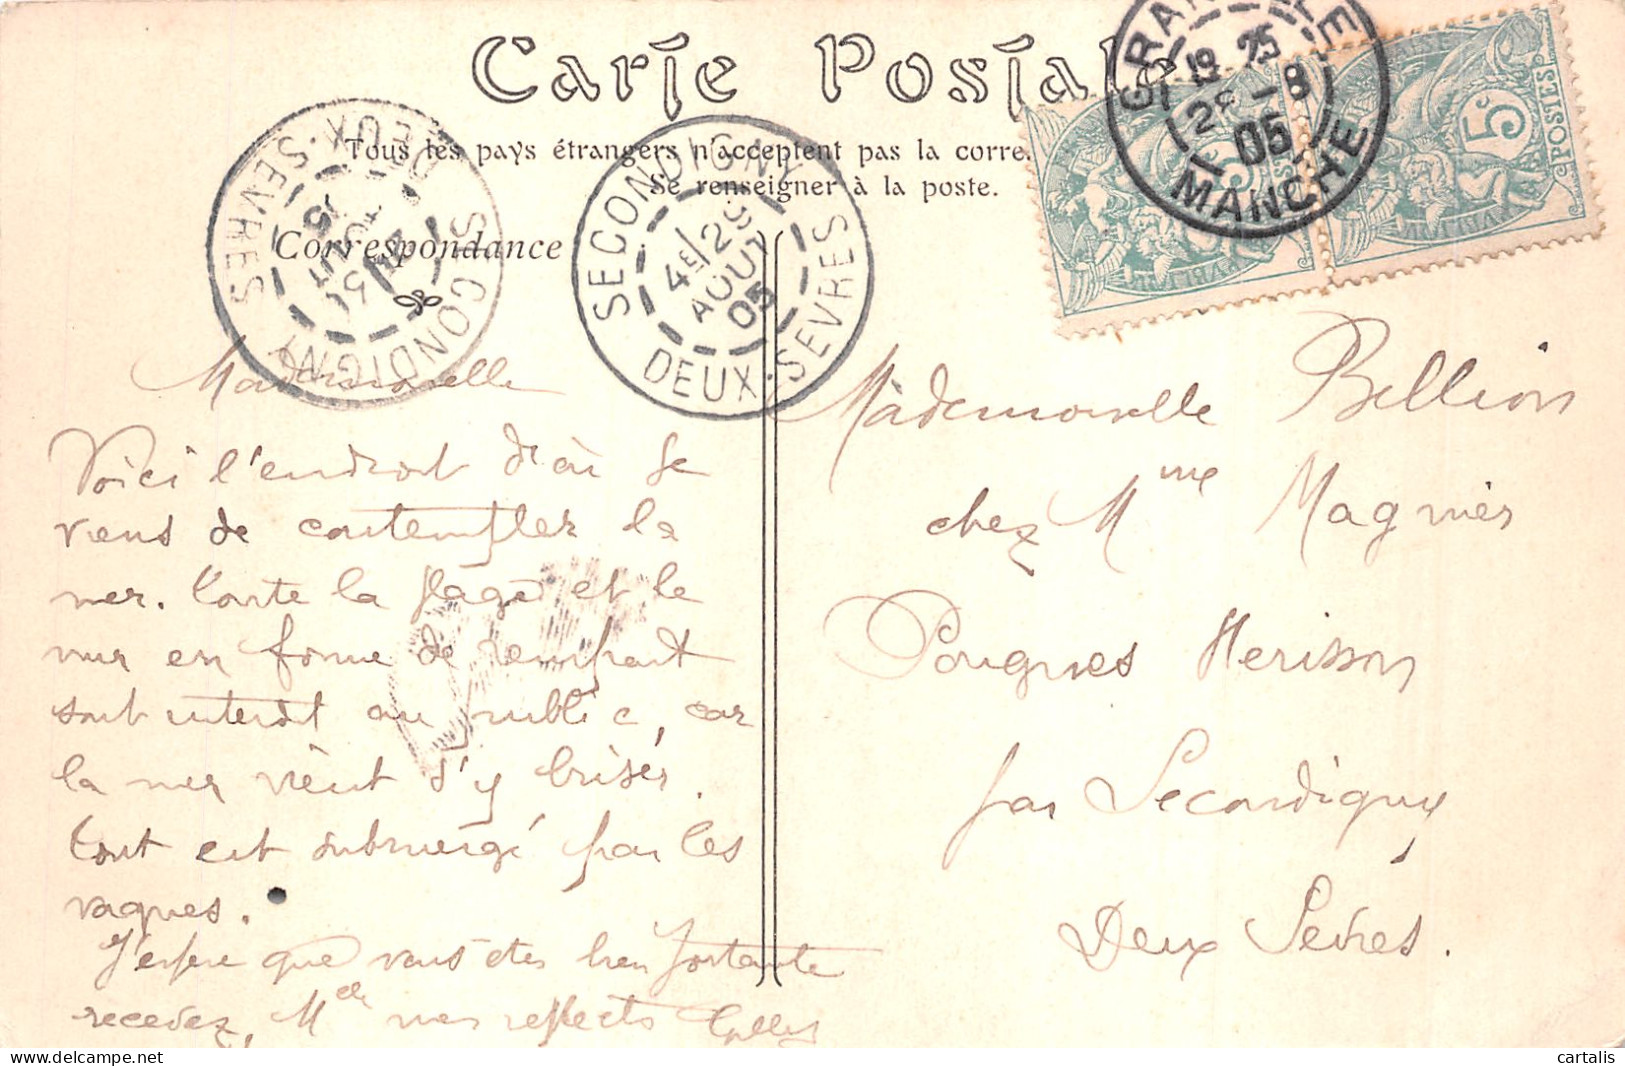 Carte Postale
Tous les pays étrangers n'acceptent pas la corre.
Se renseigner à la poste.
Correspondance
GRANVILLE
19 25
28 -8
05
MANCHE
5c
POSTES
5c
SECONDIGNY
4E/29
AOUT
05
DEUX-SEVRES
SECONDIGNY
AOUT
05
DEUX-SEVRES
Mademoiselle
Voici l'endroit d'où je
viens de contempler la
mer. Toute la plage et le
mur en forme de rempart
sont interdit au public, car
la mer vient s'y briser.
tout est submergé par les
vagues.
J'espère que vous êtes bien portante
recevez, Melle mes respects
Mademoiselle Bellion
chez Mme Magnier
Pougnes Herisson
par Secondigny
Deux Sèvres.
cartalis